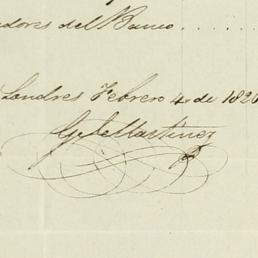 adores del Banco . . . . .
Londres Febrero 4 de 182
G. de Martinez